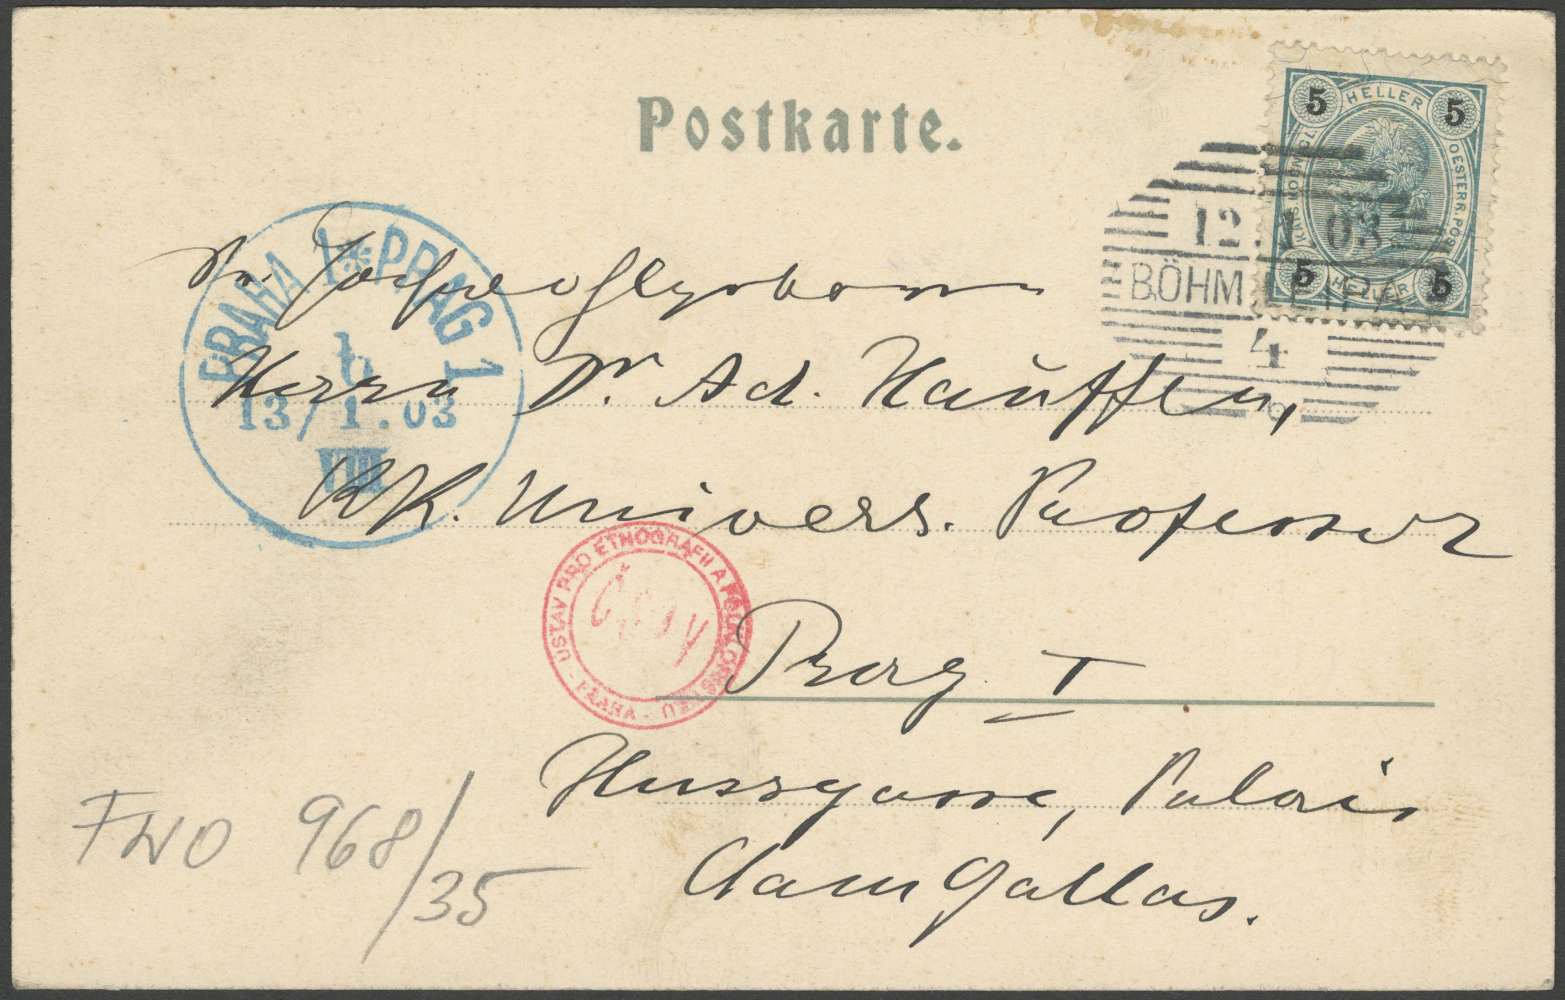 Postkarte.
5 HELLER 5
OESTERR. POST
5 HELLER 5
12. 1 03
BÖHM. LEIPA
4
PRAHA 1 * PRAG 1
13/1.03
VIII
Sr. Hochwohlgeboren
Herrn Dr. Ad. Hauffen,
KK. Univers. Professor
USTAV PRO ETNOGRAFII A FOLKLORISTIKU - PRAHA -
Prag I
Hussgasse, Palais
Clam Gallas.
FNO 968/35